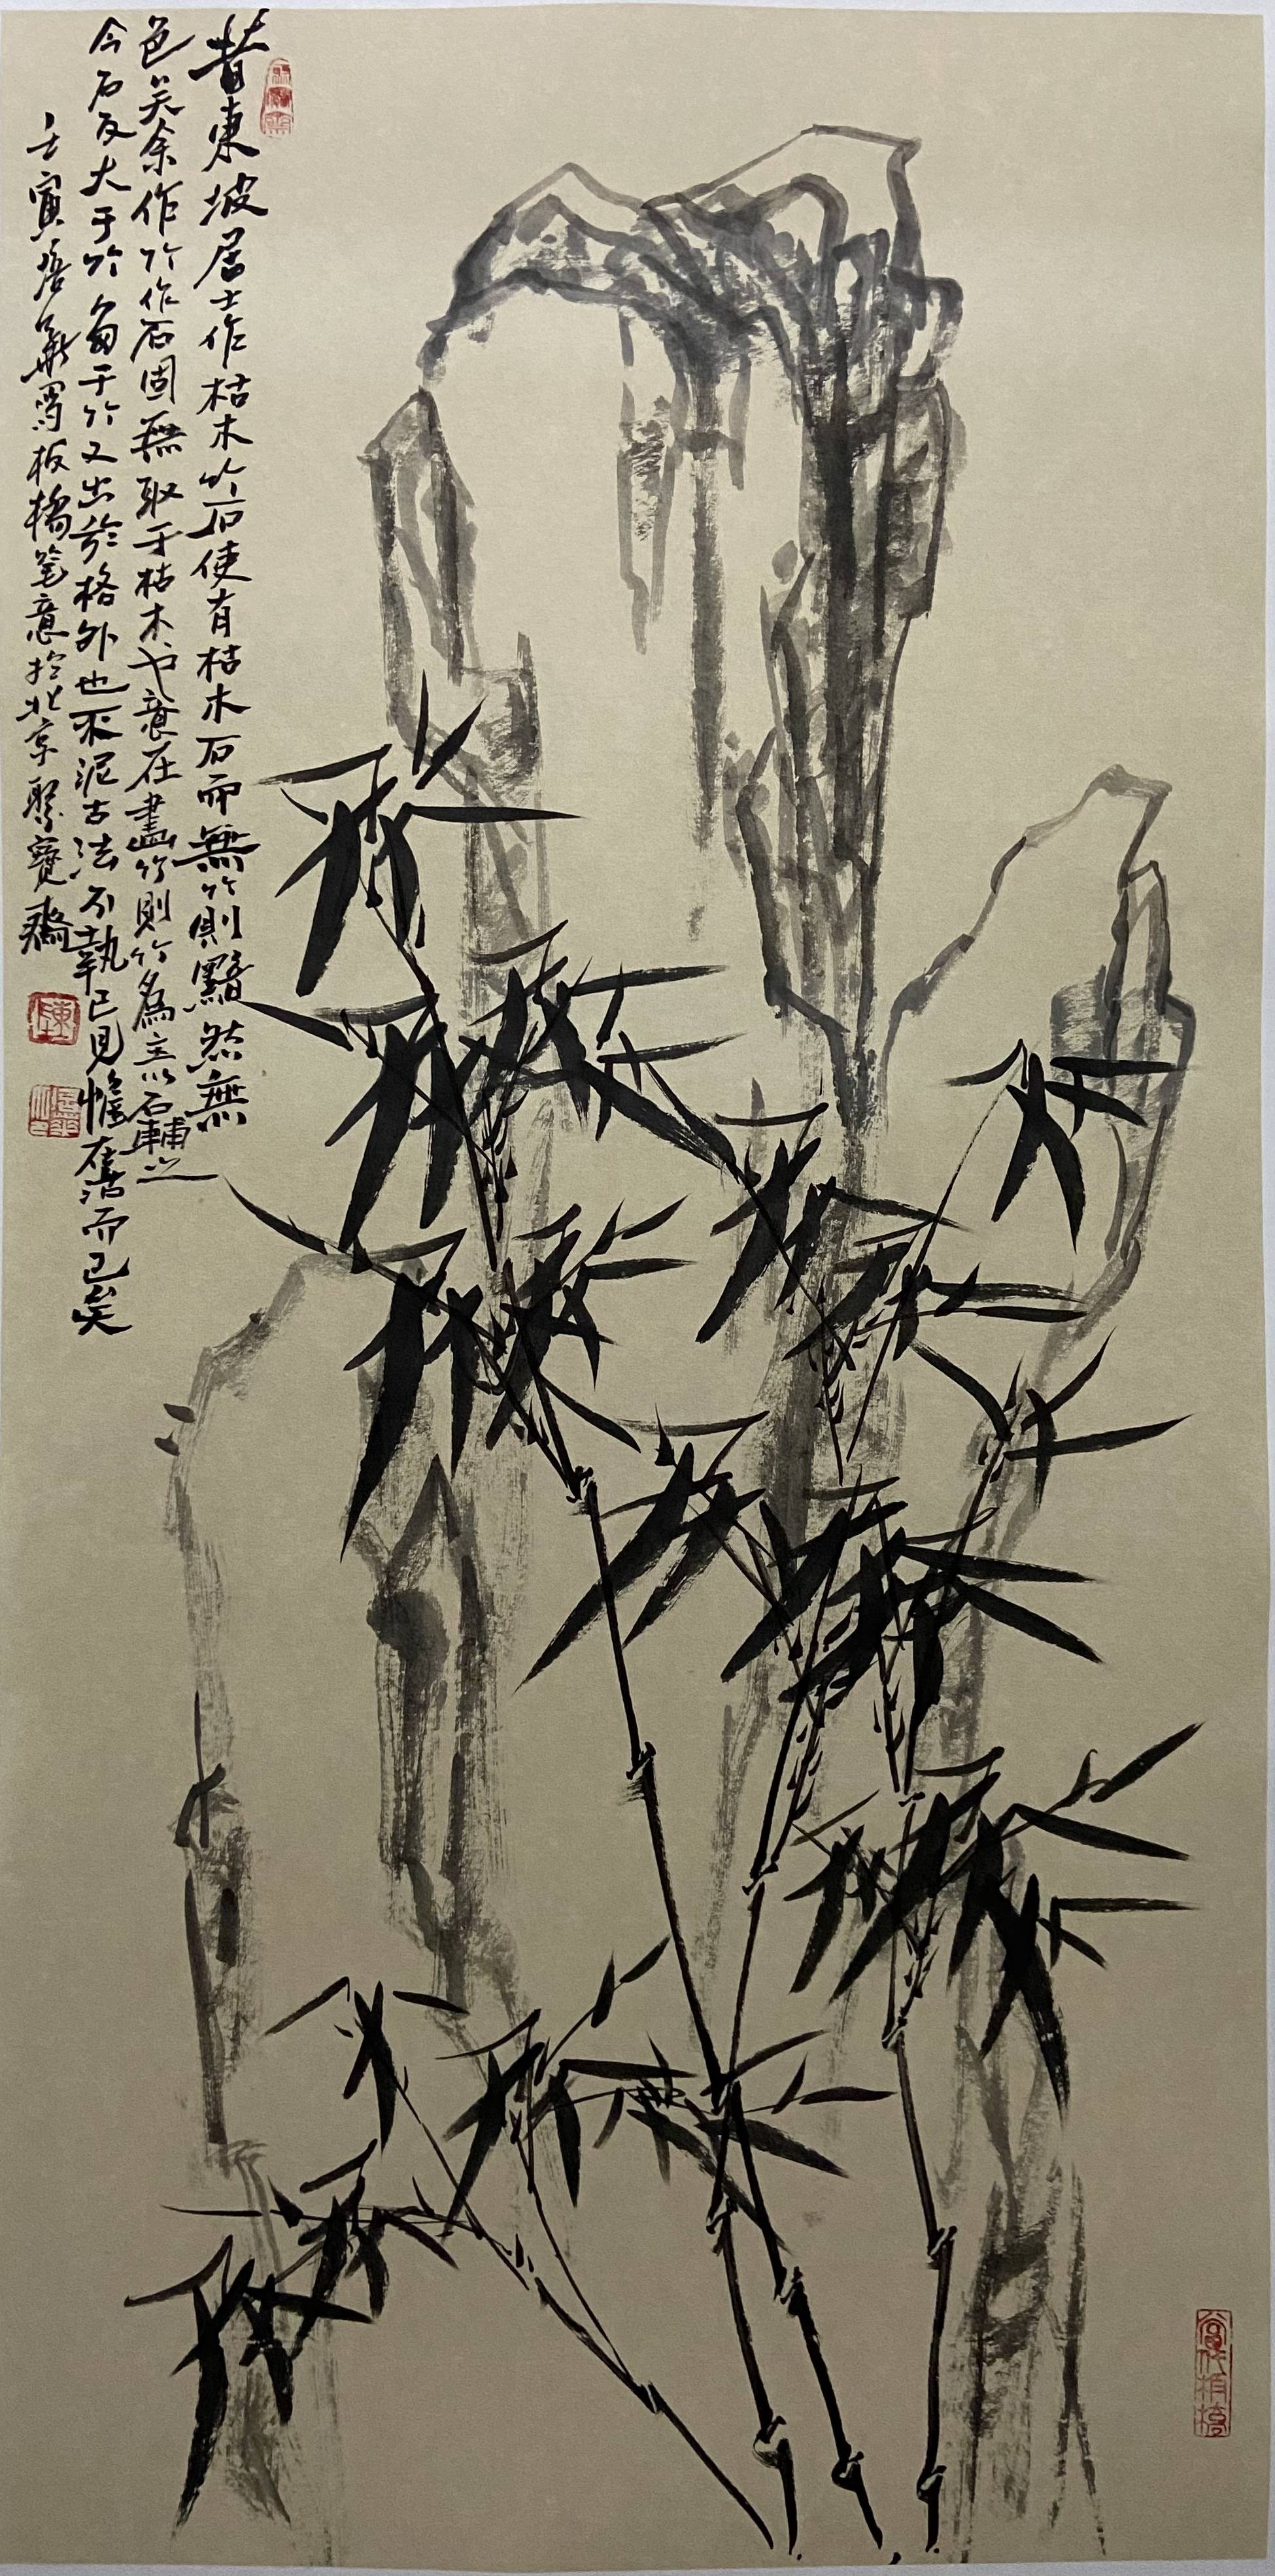 昔東坡居士作枯木竹石使有枯木石而無竹則黯然無
色矣余作竹作石固無取于枯木也意在畫竹則竹為主以石輔之
今石反大于竹多于竹又出於格外也不泥古法不執己見惟在活而已矣
壬寅 華寫板橋笔意於北京聚寶齋
陳
當代板橋